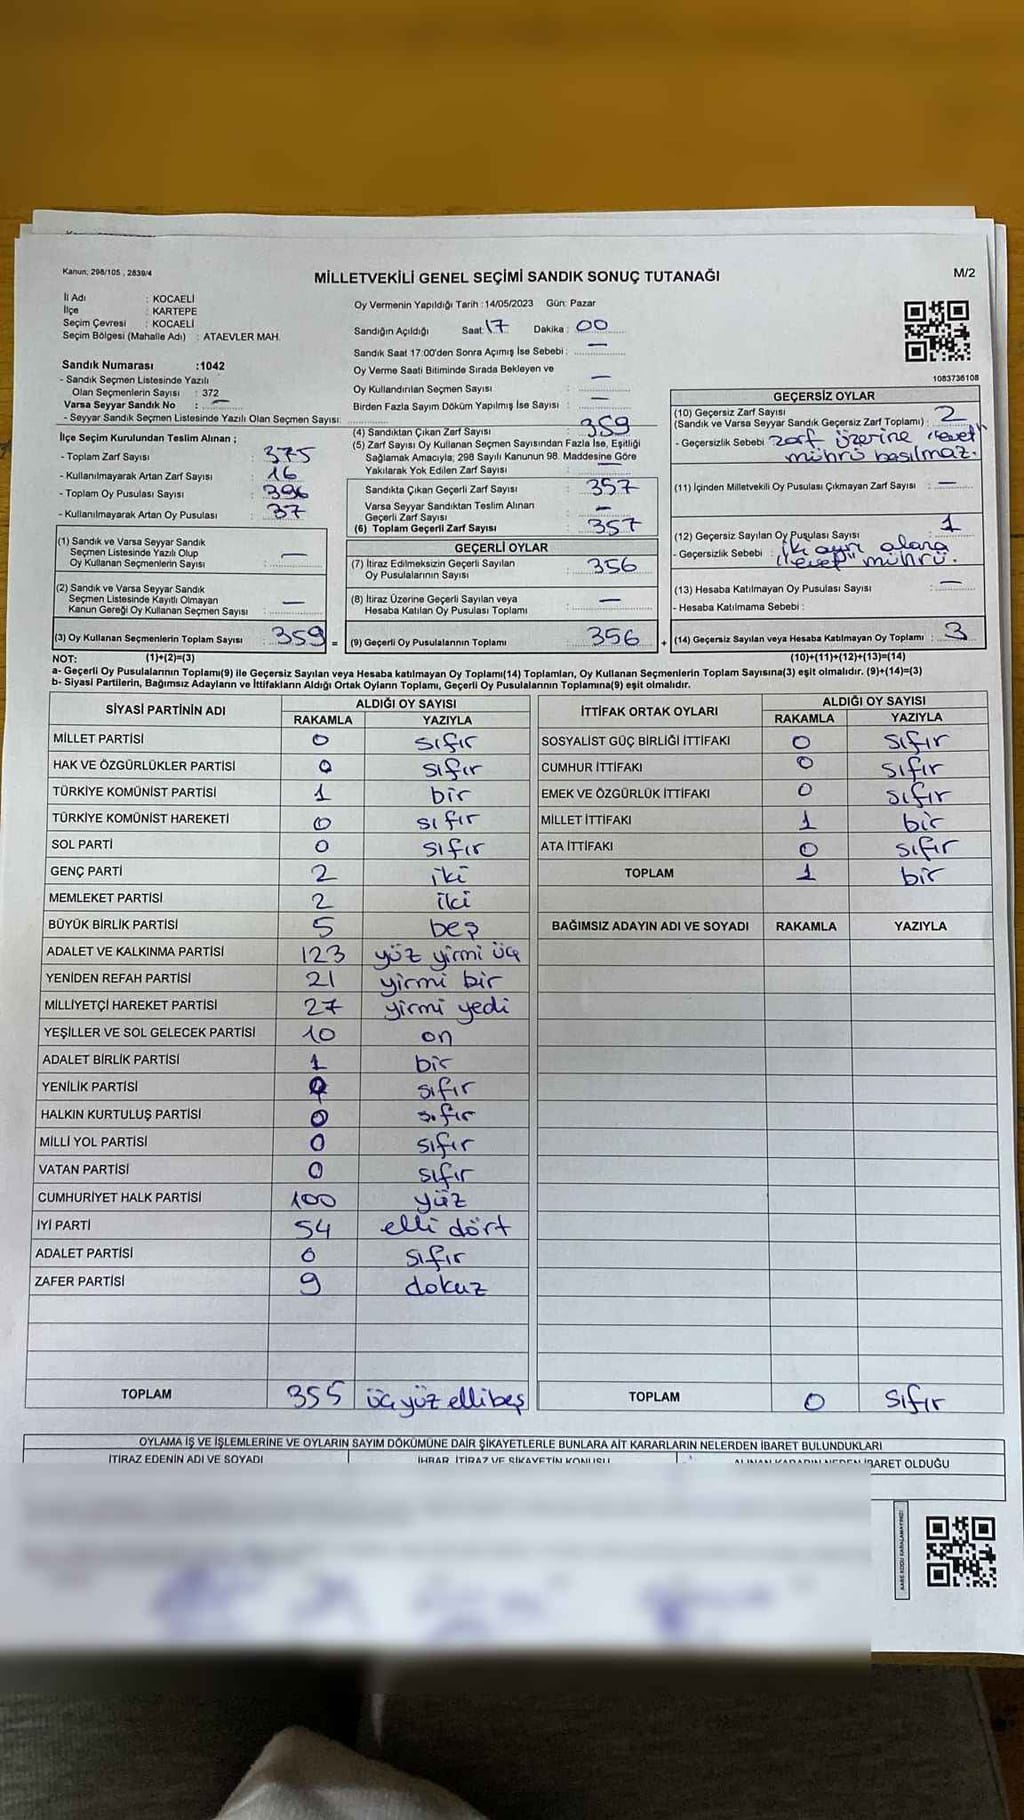 Kanun; 298/105 , 2839/4
MİLLETVEKİLİ GENEL SEÇİMİ SANDIK SONUÇ TUTANAĞI
M/2
İl Adı : KOCAELİ
İlçe : KARTEPE
Seçim Çevresi : KOCAELİ
Seçim Bölgesi (Mahalle Adı) : ATAEVLER MAH.
Sandık Numarası :1042
- Sandık Seçmen Listesinde Yazılı
Olan Seçmenlerin Sayısı : 372
Varsa Seyyar Sandık No : —
- Seyyar Sandık Seçmen Listesinde Yazılı Olan Seçmen Sayısı:
İlçe Seçim Kurulundan Teslim Alınan ;
- Toplam Zarf Sayısı : 375
- Kullanılmayarak Artan Zarf Sayısı : 16
- Toplam Oy Pusulası Sayısı : 396
- Kullanılmayarak Artan Oy Pusulası : 37
(1) Sandık ve Varsa Seyyar Sandık
Seçmen Listesinde Yazılı Olup
Oy Kullanan Seçmenlerin Sayısı : —
(2) Sandık ve Varsa Seyyar Sandık
Seçmen Listesinde Kayıtlı Olmayan
Kanun Gereği Oy Kullanan Seçmen Sayısı : —
(3) Oy Kullanan Seçmenlerin Toplam Sayısı : 359 =
Oy Vermenin Yapıldığı Tarih :14/05/2023 Gün: Pazar
Sandığın Açıldığı Saat: 17 Dakika : 00
Sandık Saat 17:00'den Sonra Açımış İse Sebebi : —
Oy Verme Saati Bitiminde Sırada Bekleyen ve
Oy Kullandırılan Seçmen Sayısı : —
Birden Fazla Sayım Döküm Yapılmış İse Sayısı : —
(4) Sandıktan Çıkan Zarf Sayısı : 359
(5) Zarf Sayısı Oy Kullanan Seçmen Sayısından Fazla İse, Eşitliği
Sağlamak Amacıyla; 298 Sayılı Kanunun 98. Maddesine Göre
Yakılarak Yok Edilen Zarf Sayısı : —
Sandıkta Çıkan Geçerli Zarf Sayısı : 357
Varsa Seyyar Sandıktan Teslim Alınan
Geçerli Zarf Sayısı : —
(6) Toplam Geçerli Zarf Sayısı : 357
GEÇERLİ OYLAR
(7) İtiraz Edilmeksizin Geçerli Sayılan
Oy Pusulalarının Sayısı : 356
(8) İtiraz Üzerine Geçerli Sayılan veya
Hesaba Katılan Oy Pusulası Toplamı : —
(9) Geçerli Oy Pusulalarının Toplamı : 356 +
1083736108
GEÇERSİZ OYLAR
(10) Geçersiz Zarf Sayısı : 2
(Sandık ve Varsa Seyyar Sandık Geçersiz Zarf Toplamı) :
- Geçersizlik Sebebi : zarf üzerine "evet"
mührü basılmaz.
(11) İçinden Milletvekili Oy Pusulası Çıkmayan Zarf Sayısı : —
(12) Geçersiz Sayılan Oy Pusulası Sayısı : 1
- Geçersizlik Sebebi : iki ayrı alana
"evet" mührü.
(13) Hesaba Katılmayan Oy Pusulası Sayısı : —
- Hesaba Katılmama Sebebi :
(14) Geçersiz Sayılan veya Hesaba Katılmayan Oy Toplamı : 3
NOT: (1)+(2)=(3) (10)+(11)+(12)+(13)=(14)
a- Geçerli Oy Pusulalarının Toplamı(9) ile Geçersiz Sayılan veya Hesaba katılmayan Oy Toplamı(14) Toplamları, Oy Kullanan Seçmenlerin Toplam Sayısına(3) eşit olmalıdır. (9)+(14)=(3)
b- Siyasi Partilerin, Bağımsız Adayların ve İttifakların Aldığı Ortak Oyların Toplamı, Geçerli Oy Pusulalarının Toplamına(9) eşit olmalıdır.
SİYASİ PARTİNİN ADI ALDIĞI OY SAYISI
RAKAMLA YAZIYLA
MİLLET PARTİSİ 0 sıfır
HAK VE ÖZGÜRLÜKLER PARTİSİ 0 sıfır
TÜRKİYE KOMÜNİST PARTİSİ 1 bir
TÜRKİYE KOMÜNİST HAREKETİ 0 sıfır
SOL PARTİ 0 sıfır
GENÇ PARTİ 2 iki
MEMLEKET PARTİSİ 2 iki
BÜYÜK BİRLİK PARTİSİ 5 beş
ADALET VE KALKINMA PARTİSİ 123 yüz yirmi üç
YENİDEN REFAH PARTİSİ 21 yirmi bir
MİLLİYETÇİ HAREKET PARTİSİ 27 yirmi yedi
YEŞİLLER VE SOL GELECEK PARTİSİ 10 on
ADALET BİRLİK PARTİSİ 1 bir
YENİLİK PARTİSİ 0 sıfır
HALKIN KURTULUŞ PARTİSİ 0 sıfır
MİLLİ YOL PARTİSİ 0 sıfır
VATAN PARTİSİ 0 sıfır
CUMHURİYET HALK PARTİSİ 100 yüz
İYİ PARTİ 54 elli dört
ADALET PARTİSİ 0 sıfır
ZAFER PARTİSİ 9 dokuz
TOPLAM 355 üçyüz ellibeş
İTTİFAK ORTAK OYLARI ALDIĞI OY SAYISI
RAKAMLA YAZIYLA
SOSYALİST GÜÇ BİRLİĞİ İTTİFAKI 0 sıfır
CUMHUR İTTİFAKI 0 sıfır
EMEK VE ÖZGÜRLÜK İTTİFAKI 0 sıfır
MİLLET İTTİFAKI 1 bir
ATA İTTİFAKI 0 sıfır
TOPLAM 1 bir
BAĞIMSIZ ADAYIN ADI VE SOYADI RAKAMLA YAZIYLA
TOPLAM 0 sıfır
OYLAMA İŞ VE İŞLEMLERİNE VE OYLARIN SAYIM DÖKÜMÜNE DAİR ŞİKAYETLERLE BUNLARA AİT KARARLARIN NELERDEN İBARET BULUNDUKLARI
İTİRAZ EDENİN ADI VE SOYADI İHBAR, İTİRAZ VE ŞİKAYETİN KONUSU ALINAN KARARIN NEDEN İBARET OLDUĞU
KARE KODU KARALAMAYINIZ!